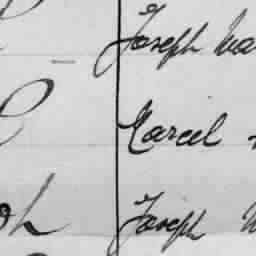 Joseph Ma
Marcel
oh Joseph